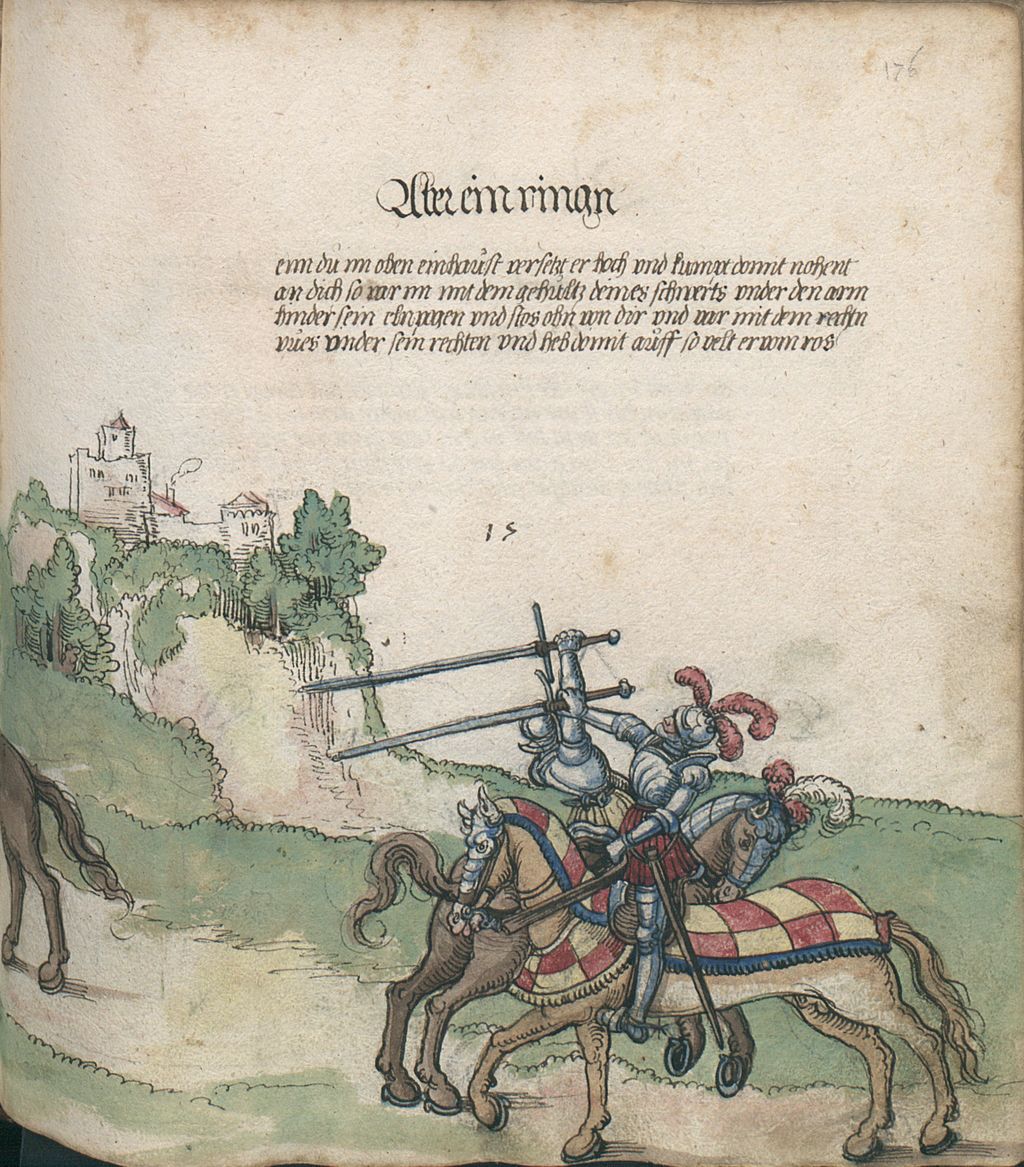 176
Aber ein ringn
enn du im oben einhaust versetzt er hoch vnd kumpt domit nohent
an dich so var im mit dem gehultz deines schwerts vnder den arm
hinder sein elnpogen vnd stos obn von dir vnd var mit dem rechtn
vues vnder sein rechten vnd heb domit auff so velt er vom ros
15